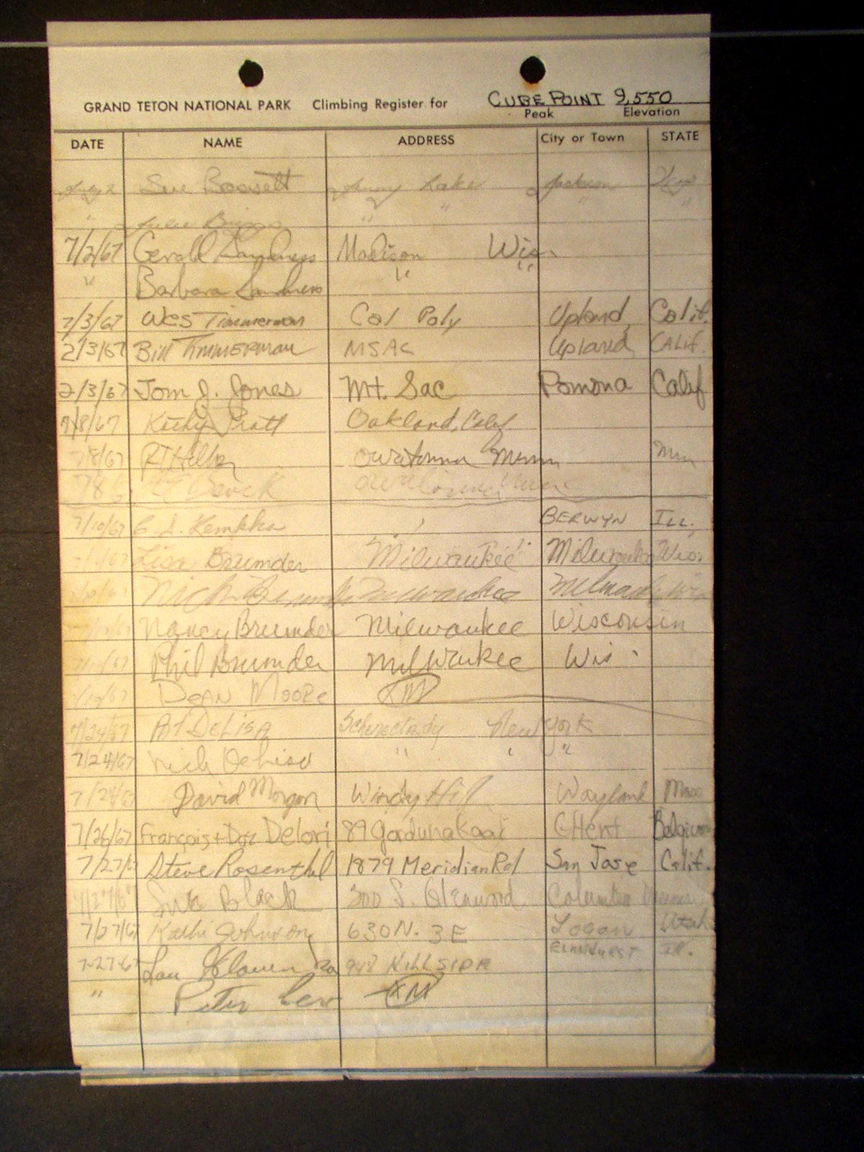 GRAND TETON NATIONAL PARK Climbing Register for CUBE POINT 9,550
Peak Elevation
DATE NAME ADDRESS City or Town STATE
July 2 Sue Bassett Jenny Lake Jackson
" Julie Briggs " " " "
7/2/67 Gerald Sandness Madison Wis.
" Barbara Sandness "
7/3/67 Wes Timmerman Cal Poly Upland, Calif.
2/3/67 Bill TIMMERMAN MSAC Upland, CALIF.
2/3/67 Tom J. Jones Mt. Sac Pomona Calif
7/8/67 Kathy Pratt Oakland, Calif
7/8/67 Owatonna Minn Minn
7/10/67 BERWYN ILL.
Lisa Brumder Milwaukee Milwaukee Wis.
Brumder Milwaukee Milwaukee
Nancy Brumder Milwaukee Wisconsin
Phil Brumder Milwaukee Wis.
7/10/67 Dean Moore
7/24/67 Art DeLisa Schenectady New York
7/24/67 " " "
7/24/67 David Morgan Windy Hill Wayland Mass
7/26/67 François + Doc Delori 89 CHent Belgium
7/27/67 Steve Rosenthal 1879 Meridian Rd San Jose Calif.
7/27/67 Sue Black 300 S. Glenwood Columbia
7/27/67 Kathi Johnson 630 N. 3 E Logan Utah
ELMHURST Ill.
7-27-67 Lou 948 HILLSIDE
" Peter